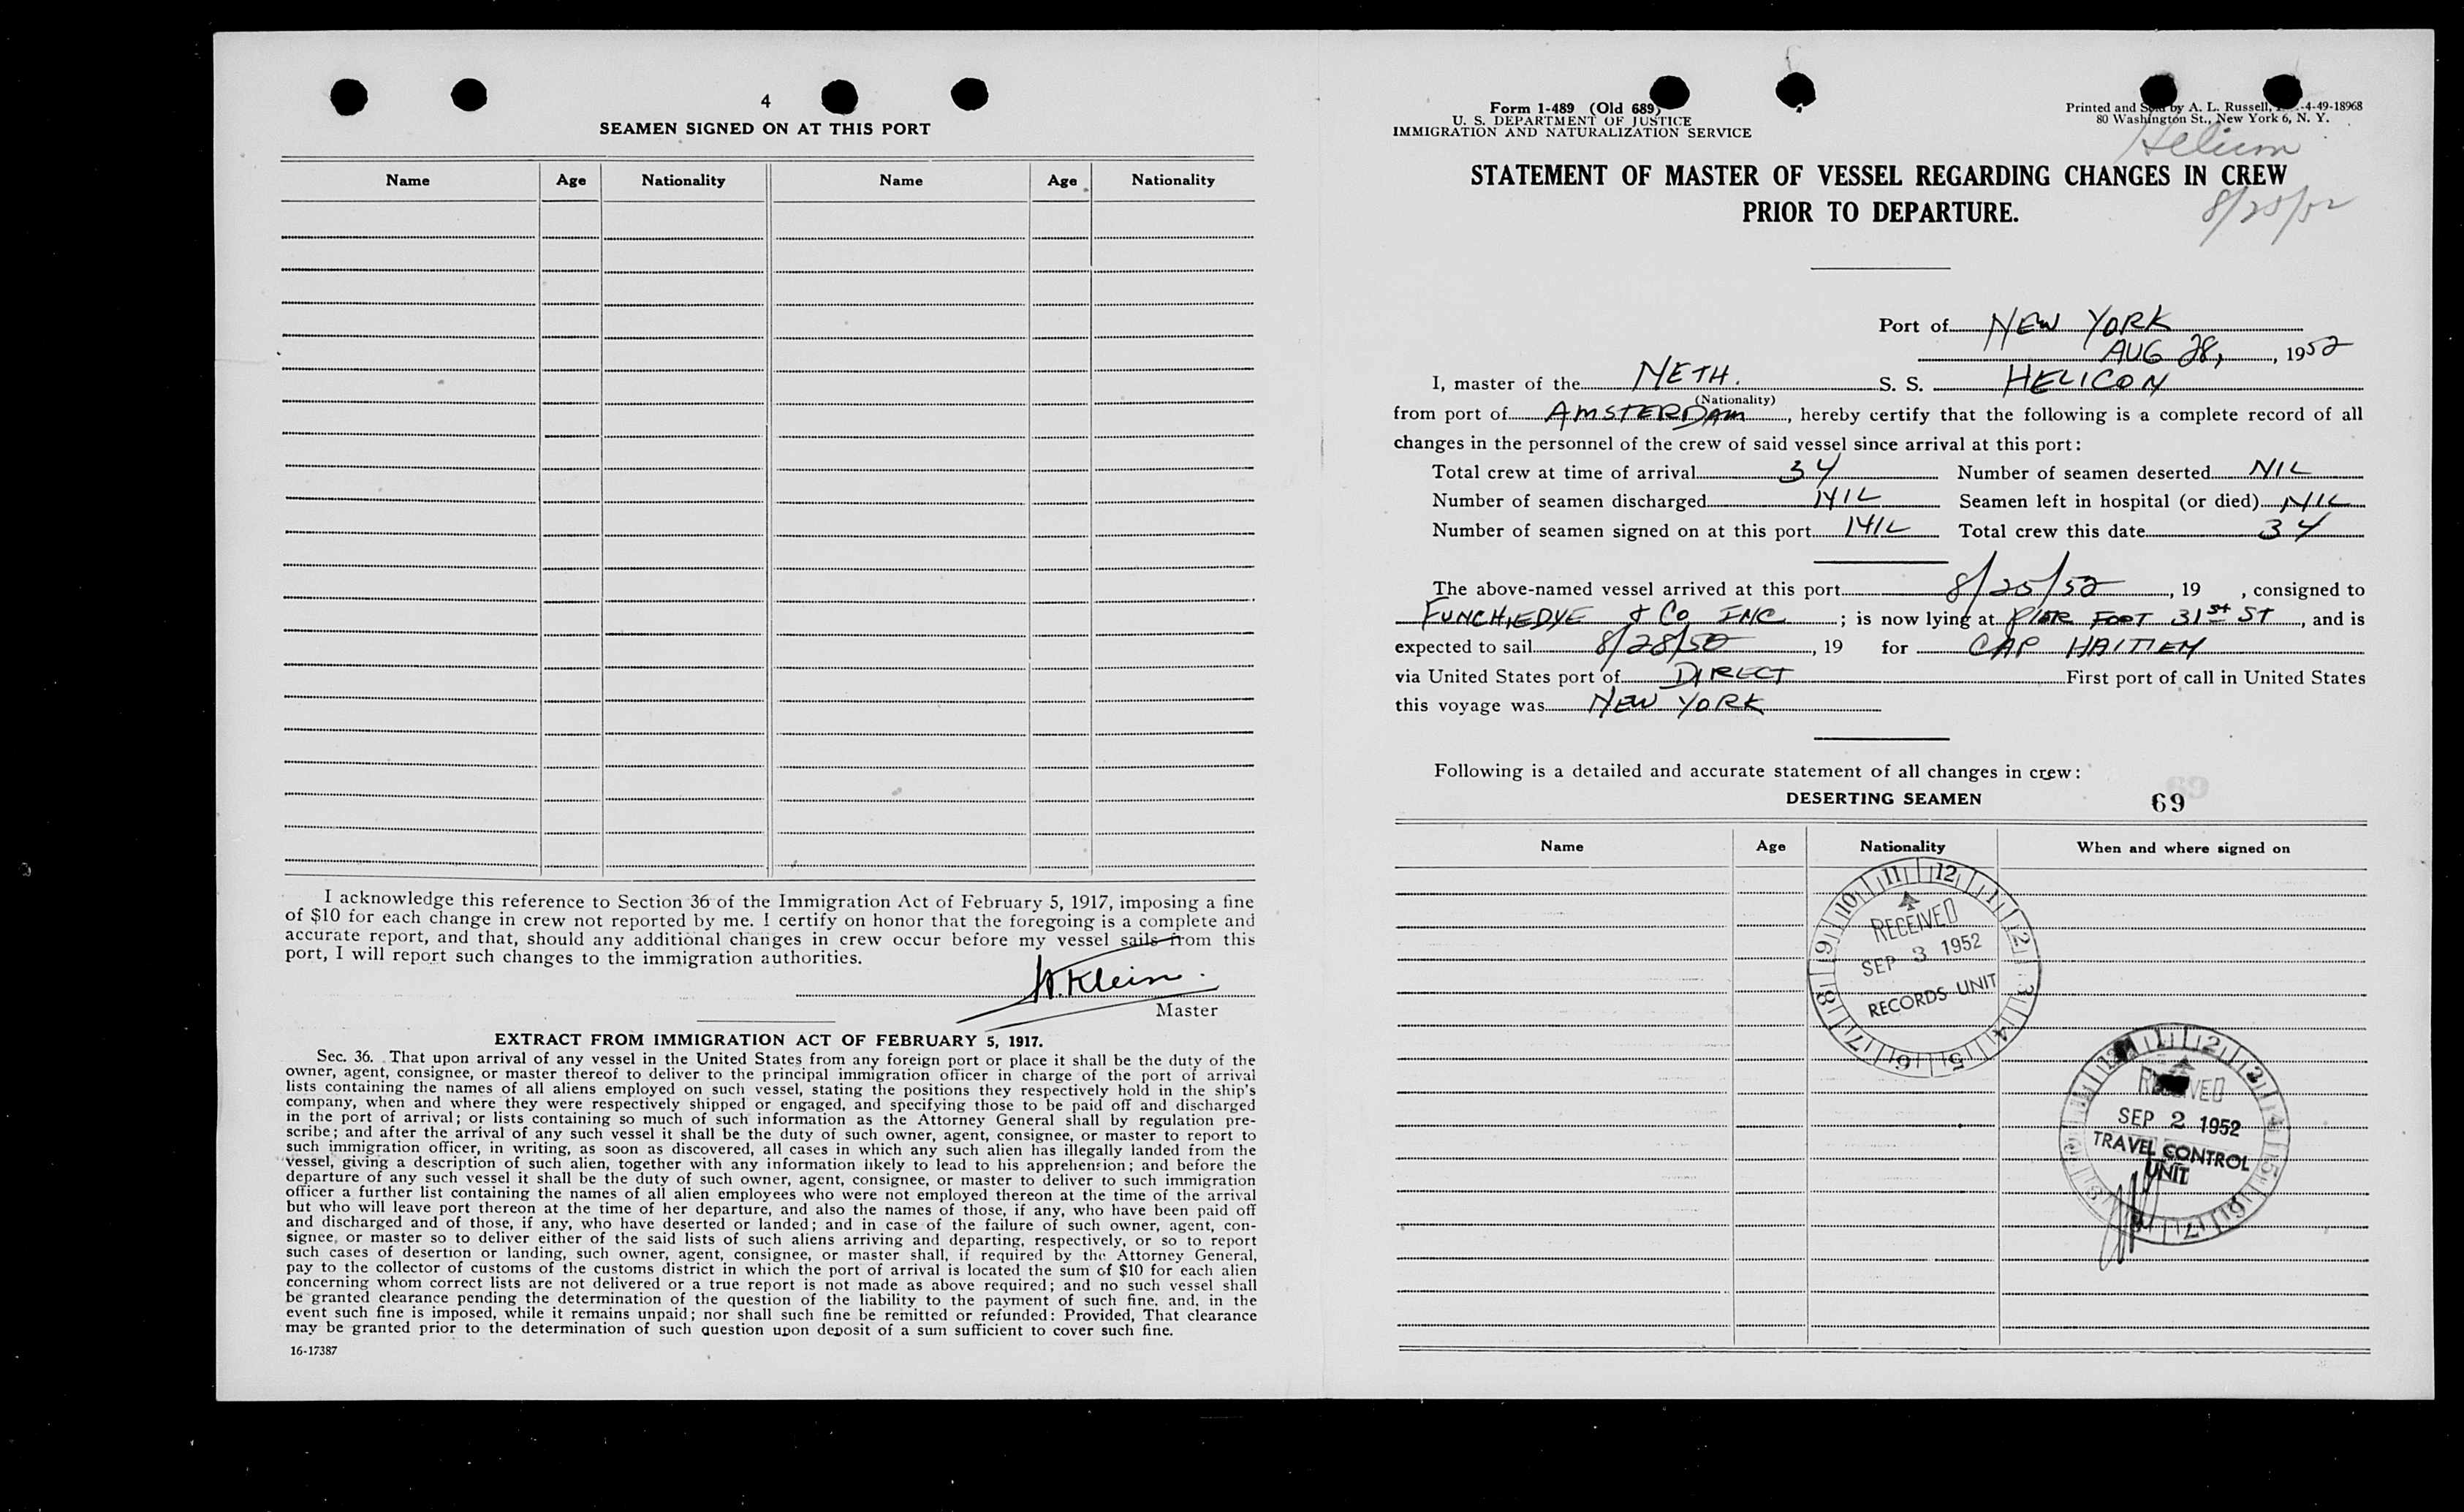 4
SEAMEN SIGNED ON AT THIS PORT
Name Age Nationality Name Age Nationality
I acknowledge this reference to Section 36 of the Immigration Act of February 5, 1917, imposing a fine
of $10 for each change in crew not reported by me. I certify on honor that the foregoing is a complete and
accurate report, and that, should any additional changes in crew occur before my vessel sails from this
port, I will report such changes to the immigration authorities.
H. Klein.
Master
EXTRACT FROM IMMIGRATION ACT OF FEBRUARY 5, 1917.
Sec. 36. That upon arrival of any vessel in the United States from any foreign port or place it shall be the duty of the
owner, agent, consignee, or master thereof to deliver to the principal immigration officer in charge of the port of arrival
lists containing the names of all aliens employed on such vessel, stating the positions they respectively hold in the ship's
company, when and where they were respectively shipped or engaged, and specifying those to be paid off and discharged
in the port of arrival; or lists containing so much of such information as the Attorney General shall by regulation pre-
scribe; and after the arrival of any such vessel it shall be the duty of such owner, agent, consignee, or master to report to
such immigration officer, in writing, as soon as discovered, all cases in which any such alien has illegally landed from the
vessel, giving a description of such alien, together with any information likely to lead to his apprehension; and before the
departure of any such vessel it shall be the duty of such owner, agent, consignee, or master to deliver to such immigration
officer a further list containing the names of all alien employees who were not employed thereon at the time of the arrival
but who will leave port thereon at the time of her departure, and also the names of those, if any, who have been paid off
and discharged and of those, if any, who have deserted or landed; and in case of the failure of such owner, agent, con-
signee, or master so to deliver either of the said lists of such aliens arriving and departing, respectively, or so to report
such cases of desertion or landing, such owner, agent, consignee, or master shall, if required by the Attorney General,
pay to the collector of customs of the customs district in which the port of arrival is located the sum of $10 for each alien
concerning whom correct lists are not delivered or a true report is not made as above required; and no such vessel shall
be granted clearance pending the determination of the question of the liability to the payment of such fine, and, in the
event such fine is imposed, while it remains unpaid; nor shall such fine be remitted or refunded: Provided, That clearance
may be granted prior to the determination of such question upon deposit of a sum sufficient to cover such fine.
16-17387
Form 1-489 (Old 689)
U. S. DEPARTMENT OF JUSTICE
IMMIGRATION AND NATURALIZATION SERVICE
Printed and Sold by A. L. Russell, -4-49-18968
80 Washington St., New York 6, N. Y.
STATEMENT OF MASTER OF VESSEL REGARDING CHANGES IN CREW
PRIOR TO DEPARTURE.
8/25/52
Port of NEW YORK
AUG 28, , 1952
I, master of the NETH. S. S. HELICON
(Nationality)
from port of AMSTERDAM, hereby certify that the following is a complete record of all
changes in the personnel of the crew of said vessel since arrival at this port:
Total crew at time of arrival 34 Number of seamen deserted NIL
Number of seamen discharged NIL Seamen left in hospital (or died) NIL
Number of seamen signed on at this port NIL Total crew this date 34
The above-named vessel arrived at this port 8/25/52, 19 , consigned to
FUNCH, EDYE & CO INC ; is now lying at PIER FOOT 31ST ST, and is
expected to sail 8/28/52, 19 for CAP HAITIEN
via United States port of DIRECT First port of call in United States
this voyage was NEW YORK
Following is a detailed and accurate statement of all changes in crew:
DESERTING SEAMEN 69
Name Age Nationality When and where signed on
11 12 1 2 3 4 5 6 7 8 9 10
RECEIVED
SEP 3 1952
RECORDS UNIT
RECEIVED
SEP 2 1952
TRAVEL CONTROL
UNIT